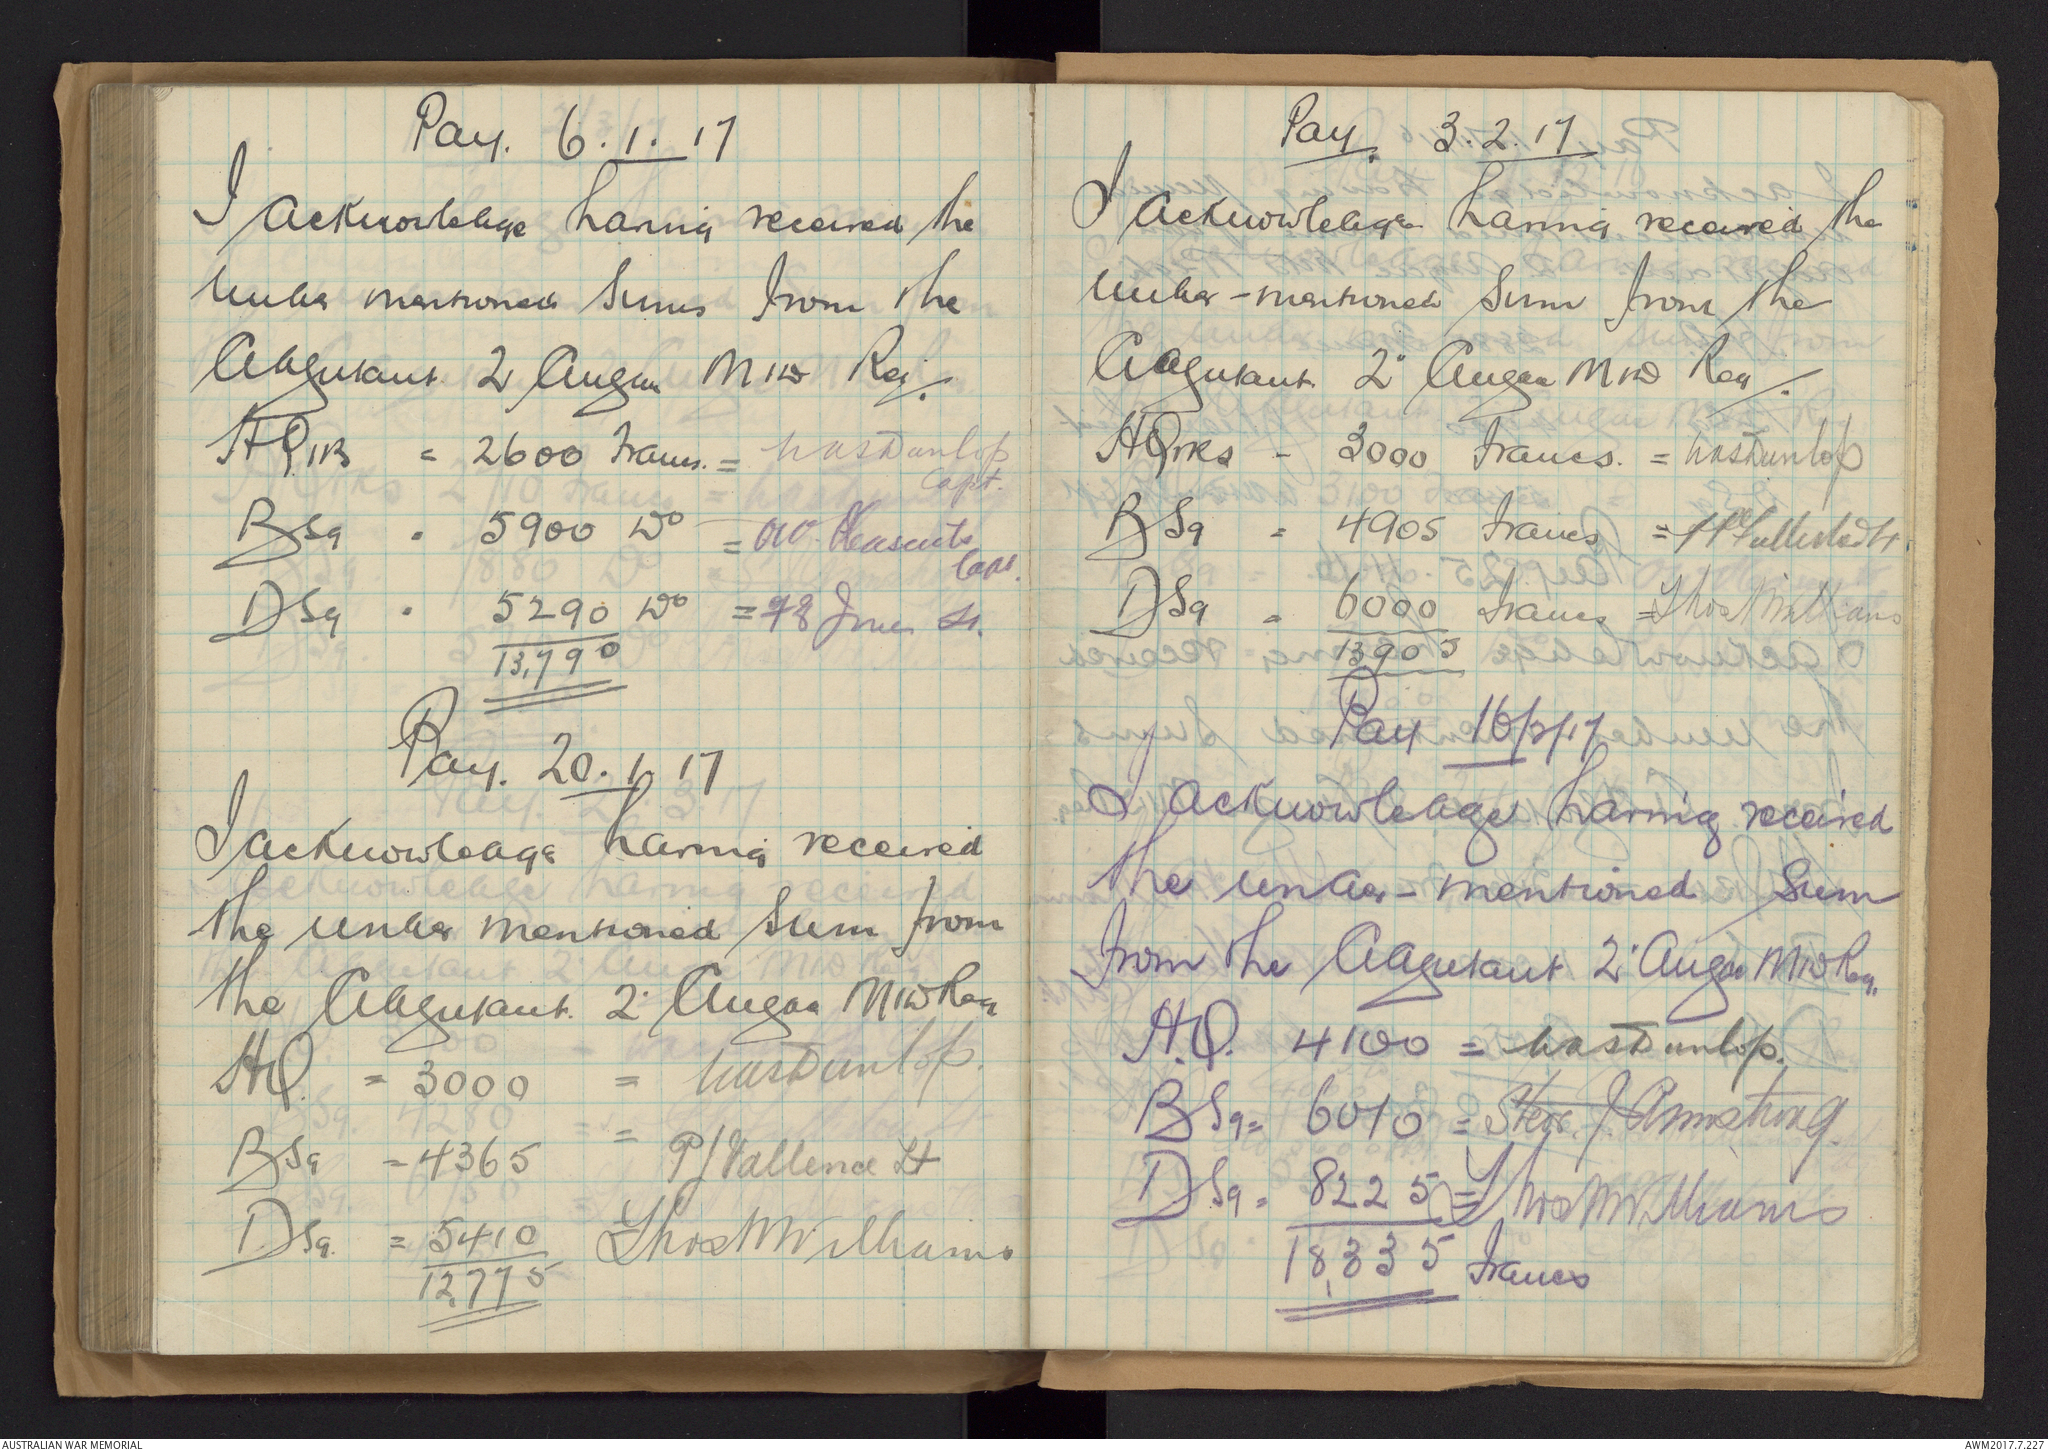 Pay. 6.1.17
I acknowledge having received the
under mentioned sums from the
Adjutant 2 Anzac Mtd Reg.
HQrs = 2600 Francs. = WasDunlop
Capt.
B Sq . 5900 Do = Pleasents
Capt.
D Sq . 5290 Do = Jones Lt.
13,790
Pay. 20.1.17
I acknowledge having received
the under mentioned sum from
the Adjutant. 2 Anzac Mtd Reg
HQ. = 3000 = WasDunlop.
B Sq = 4365 = P J Vallence Lt
D Sq. = 5410 Thos M Williams
12,775
Pay. 3.2.17
I acknowledge having received the
under-mentioned sum from the
Adjutant. 2 Anzac Mtd Reg.
HQrks - 3000 Francs. = WasDunlop
B Sq = 4905 Francs =
D Sq = 6000 Francs = Thos M Williams
13905
Pay 16/2/17
I acknowledge having received
the under-mentioned sum
from the Adjutant 2 Anzac Mtd Reg.
H.Q. 4100 = WasDunlop.
B Sq = 6010 = J. Armstrong.
D Sq = 8225 = Thos M Williams
18,335 Francs
AUSTRALIAN WAR MEMORIAL
AWM2017.7.227